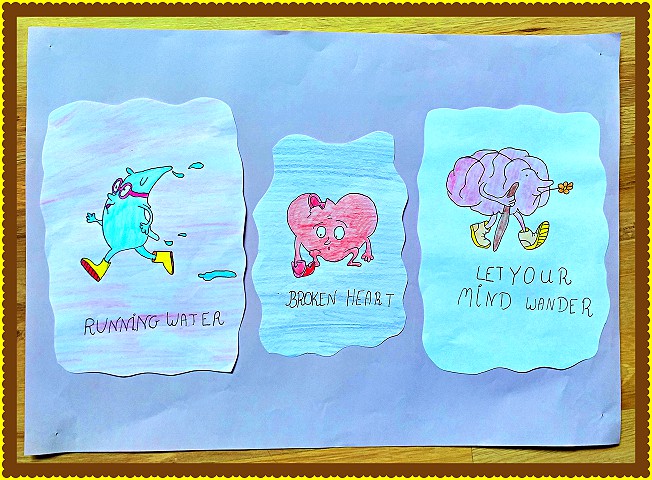 RUNNING WATER
BROKEN HEART
LET YOUR
MIND WANDER